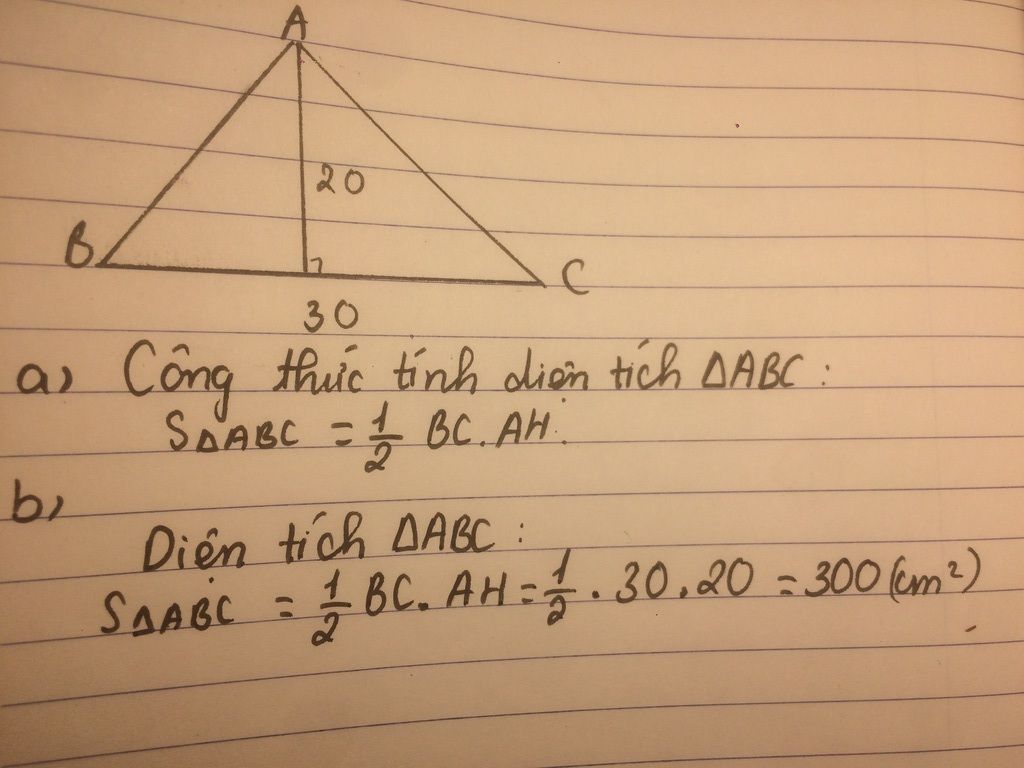 A
20
B
C
30
a) Công thức tính diện tích ΔABC:
SΔABC = 1/2 BC. AH.
b)
Diện tích ΔABC:
SΔABC = 1/2 BC. AH = 1/2 . 30 . 20 = 300 (cm²)